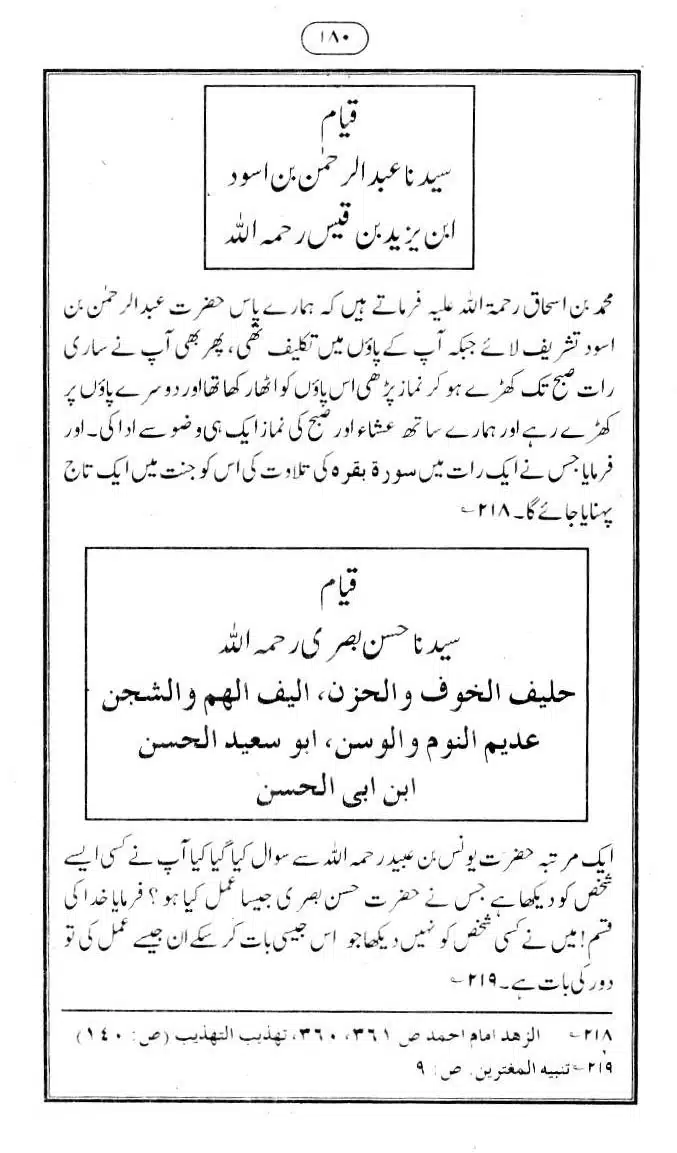 ۱۸۰
قیام
سیدنا عبدالرحمٰن بن اسود
ابن یزید بن قیس رحمہ اللہ
محمد بن اسحاق رحمۃ اللہ علیہ فرماتے ہیں کہ ہمارے پاس حضرت عبدالرحمٰن بن
اسود تشریف لائے جبکہ آپ کے پاؤں میں تکلیف تھی، پھر بھی آپ نے ساری
رات صبح تک کھڑے ہو کر نماز پڑھی اس پاؤں کو اٹھا رکھا تھا اور دوسرے پاؤں پر
کھڑے رہے اور ہمارے ساتھ عشاء اور صبح کی نماز ایک ہی وضو سے ادا کی۔ اور
فرمایا جس نے ایک رات میں سورۃ بقرہ کی تلاوت کی اس کو جنت میں ایک تاج
پہنایا جائے گا۔ ۲۱۸؎
قیام
سیدنا حسن بصری رحمہ اللہ
حلیف الخوف والحزن، الیف الھم والشجن
عدیم النوم والوسن، ابو سعید الحسن
ابن ابی الحسن
ایک مرتبہ حضرت یونس بن عبید رحمہ اللہ سے سوال کیا گیا کیا آپ نے کسی ایسے
شخص کو دیکھا ہے جس نے حضرت حسن بصری جیسا عمل کیا ہو؟ فرمایا خدا کی
قسم! میں نے کسی شخص کو نہیں دیکھا جو اس جیسی بات کر سکے ان جیسے عمل کی تو
دور کی بات ہے۔ ۲۱۹؎
۲۱۸؎ الزھد امام احمد ص ۳۶۱، ۳۶۰، تھذیب التھذیب (ص: ۱۴۰)
۲۱۹؎ تنبیہ المغترین. ص: ۹